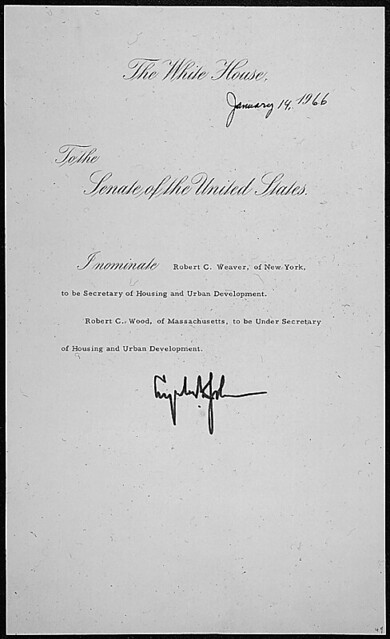 The White House,
January 14, 1966
To the
Senate of the United States.
I nominate Robert C. Weaver, of New York,
to be Secretary of Housing and Urban Development.
Robert C. Wood, of Massachusetts, to be Under Secretary
of Housing and Urban Development.
Lyndon B. Johnson